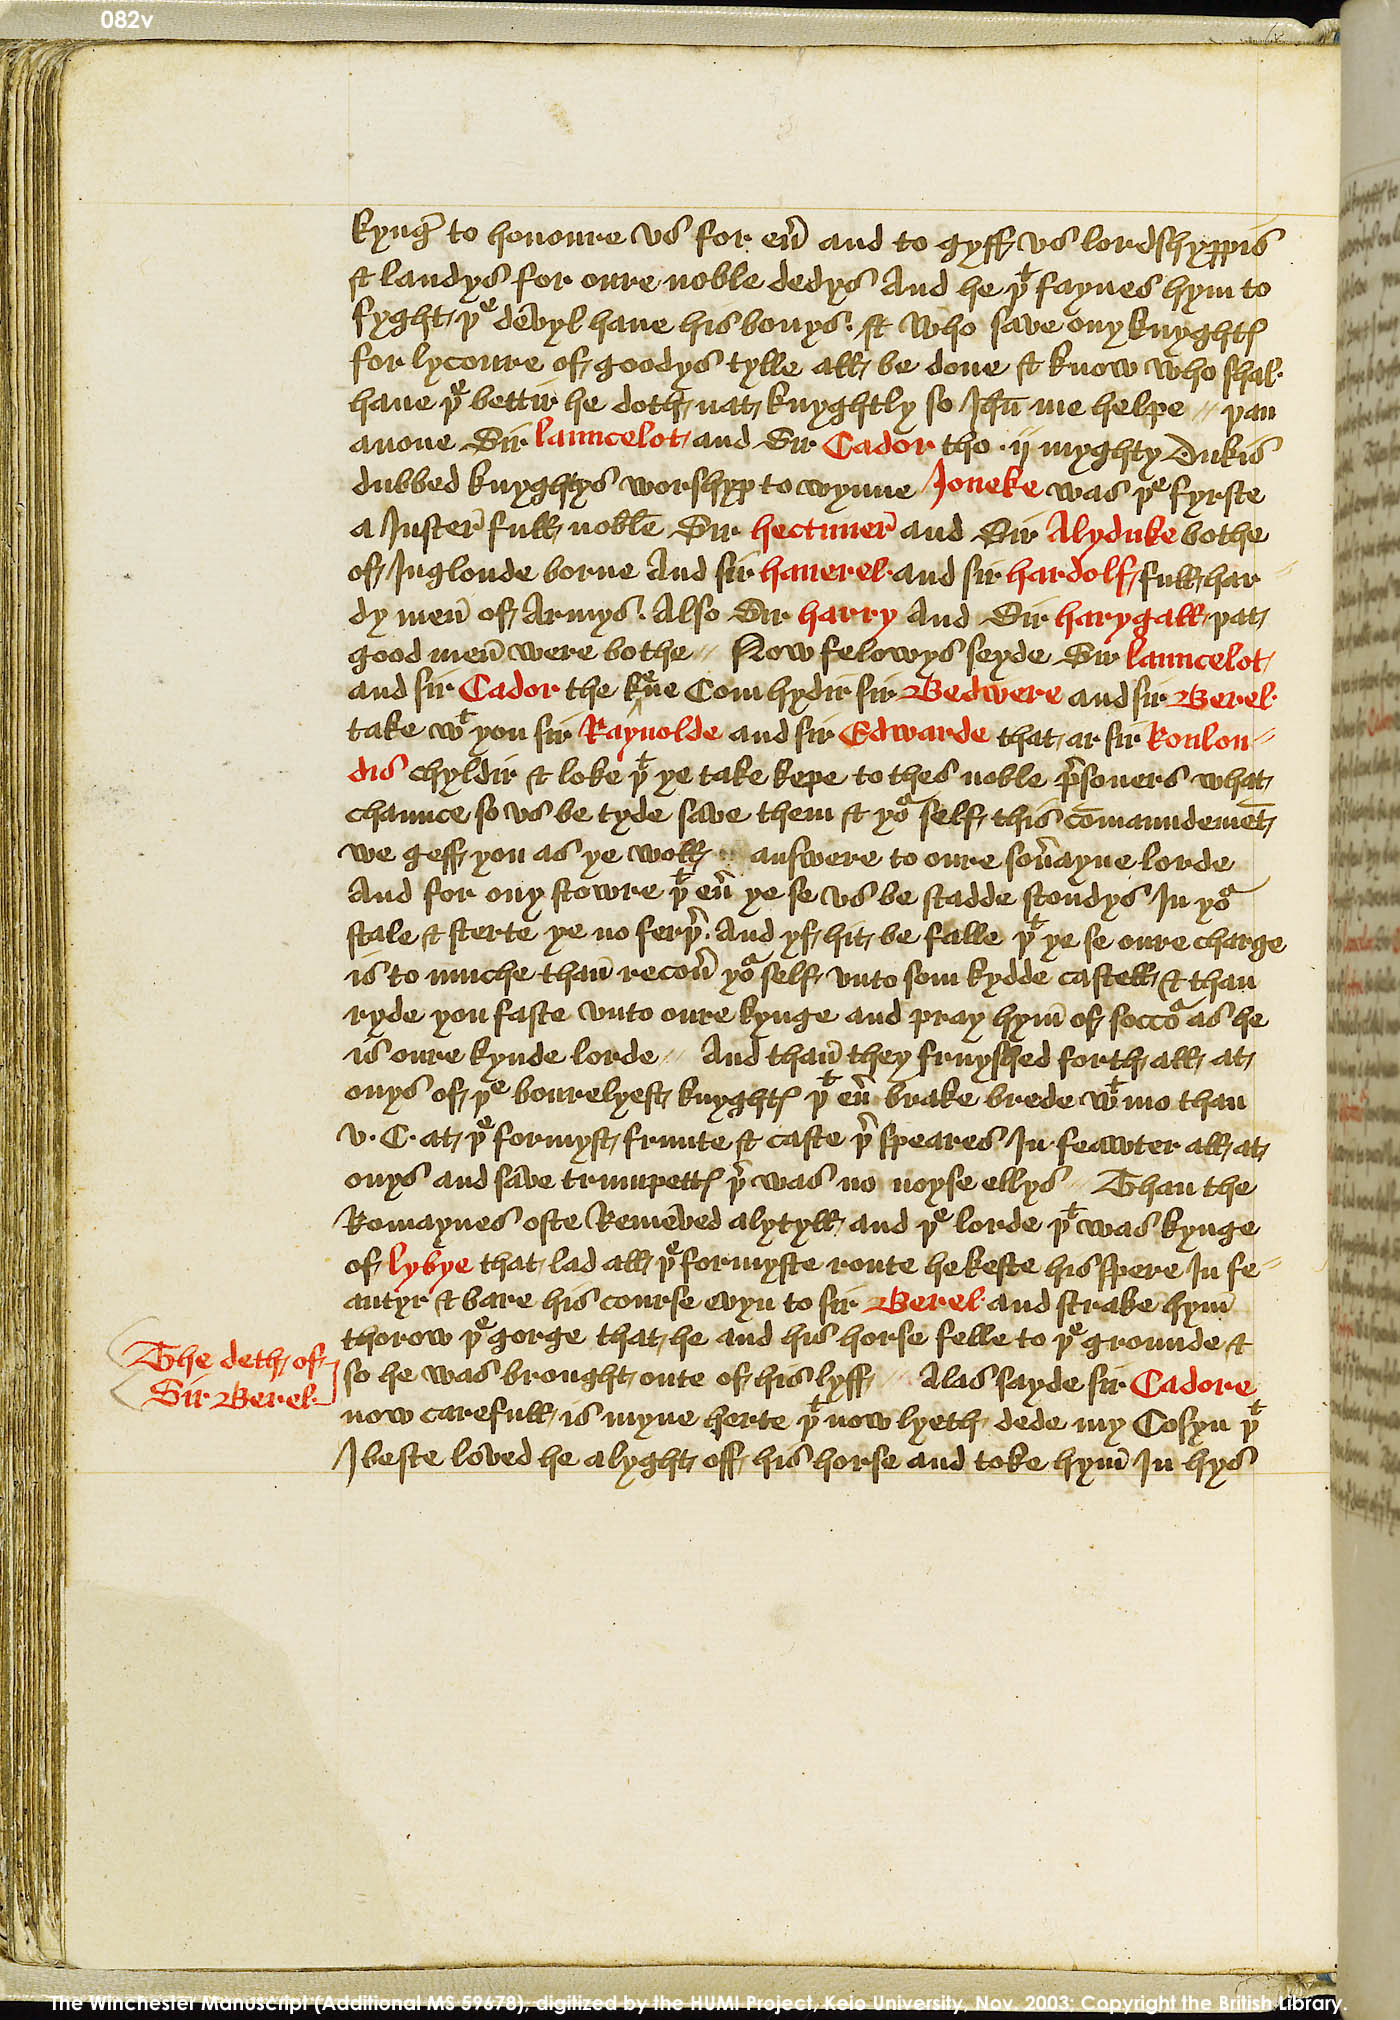 082v
kyngꝭ to honoure vs for eu̅ and to gyff vs lordshyppis
& landys for oure noble dedys And he þᵗ faynes hym to
fyght þᵉ devyl haue his bonys . & who save ony knyghtꝭ
for lycoure of goodys tylle all be done & know who shal
haue þᵉ bettir he doth nat knyghtly so Ihū me helpe // þan
anone Sir launcelot and Sir Cador tho .ij. myghty Dukis
dubbed knyghtys worshyp to wynne Joneke was þᵉ fyrste
a Juster full noble Sir hectimer and Sir Alyduke bothe
of Inglonde borne And sir hamerel and sir hardolf full har
dy men of Armys . Also Sir harry And Sir harygall þat
good men were bothe // Now felowys seyde Sir launcelot
and sir Cador the kene Com hydir sir Bedwere and sir Berel
take wᵗ you sir Raynolde and sir Edwarde that ar sir Roulon
dis chyldir & loke þᵗ ye take kepe to thes noble p̱soners what
chaunce so vs be tyde save them & yoᵘ self this com̄aundemēt
we geff you as ye woll answere to oure sou̅ayne lorde
And for ony stowre þᵗ eu̅ ye se vs be stadde stondys In yoᵘ
stale & sterte ye no ferþ̱ . And yf hit be falle þᵗ ye se oure charge
is to muche than recou̅ yoᵘ self vnto som kydde castell & than
ryde you faste vnto oure kynge and pray hym of soccoᵘ as he
is oure kynde lorde // And than they fruyshed forth all at
onys of þᵉ bourelyest knyghtꝭ þᵗ eu̅ brake brede wᵗ mo than
v . C . at þᵉ formyst frunte & caste þ̱ speares In feawter all at
onys and save trumpettꝭ þ̱ was no noyse ellys // Than the
Romaynes oste Remeved a lytyll and þᵉ lorde þᵗ was kynge
of lybye that lad all þᵉ formyste route he keste his spere In fe
autyr & bare his course evyn to sir Berel and strake hym
thorow þᵉ gorge that he and his horse felle to þᵉ grounde &
so he was brought oute of his lyff // Alas sayde sir Cadore
now carefull is myne herte þᵗ now lyeth dede my Cosyn þᵗ
I beste loved he alyght off his horse and toke hym In hys
The deth of
Sir Berel
The Winchester Manuscript (Additional MS 59678), digitized by the HUMI Project, Keio University, Nov. 2003; Copyright the British Library.